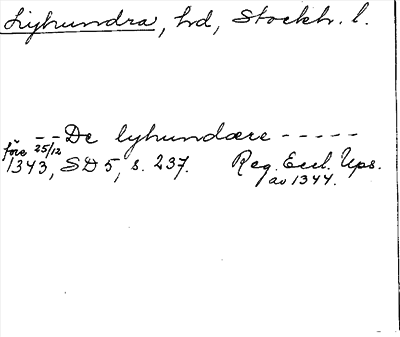 Lyhundra, hd, Stockh. l.
-- De lyhundære -----
före 25/12
1343, SD 5, s. 237. Reg. Eccl. Ups.
av 1344.